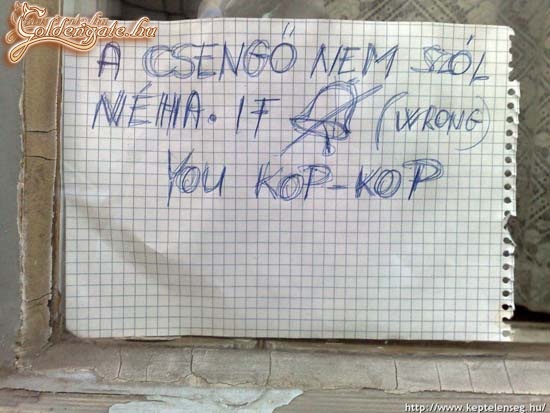 Goldengate.hu
A CSENGŐ NEM SZÓL
NÉHA. IF (WRONG)
YOU KOP-KOP
http://www.keptelenseg.hu/